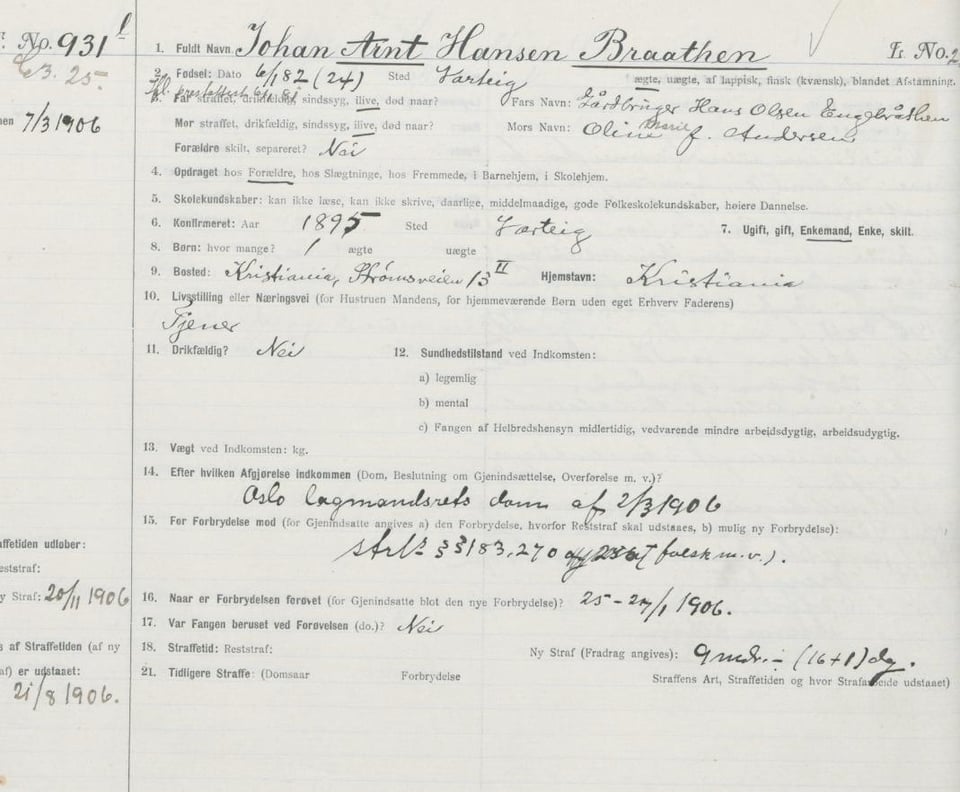 No. 931 l
C3. 25.
7/3 1906
1. Fuldt Navn Johan Arnt Hansen Braathen L. No. 2
2. Fødsel: Dato 6/1 82 (24) Sted Varteig ægte, uægte, af lappisk, finsk (kvænsk), blandet Afstamning.
3. Far straffet, drikfældig, sindssyg, ilive, død naar? Fars Navn: Gårdbruger Hans Olsen Engebråthen
Mor straffet, drikfældig, sindssyg, ilive, død naar? Mors Navn: Oline Marie f. Andersen
Forældre skilt, separeret? Nei
4. Opdraget hos Forældre, hos Slægtninge, hos Fremmede, i Barnehjem, i Skolehjem.
5. Skolekundskaber: kan ikke læse, kan ikke skrive, daarlige, middelmaadige, gode Folkeskolekundskaber, høiere Dannelse.
6. Konfirmeret: Aar 1895 Sted Varteig 7. Ugift, gift, Enkemand, Enke, skilt.
8. Børn: hvor mange? 1 ægte uægte
9. Bosted: Kristiania, Strømsveien 13 II Hjemstavn: Kristiania
10. Livsstilling eller Næringsvei (for Hustruen Mandens, for hjemmeværende Børn uden eget Erhverv Faderens)
Tjener
11. Drikfældig? Nei 12. Sundhedstilstand ved Indkomsten:
a) legemlig
b) mental
c) Fangen af Helbredshensyn midlertidig, vedvarende mindre arbeidsdygtig, arbeidsudygtig.
13. Vægt ved Indkomsten: kg.
14. Efter hvilken Afgjørelse indkommen (Dom, Beslutning om Gjenindsættelse, Overførelse m. v.)?
Oslo lagmandsrets dom af 2/3 1906
15. For Forbrydelse mod (for Gjenindsatte angives a) den Forbrydelse, hvorfor Reststraf skal udstaaes, b) mulig ny Forbrydelse):
strl §§ 183, 270 (falsk m.v.).
affetiden udløber:
eststraf:
y Straf: 20/11 1906
16. Naar er Forbrydelsen forøvet (for Gjenindsatte blot den nye Forbrydelse)? 25 - 27/1 1906.
17. Var Fangen beruset ved Forøvelsen (do.)? Nei
s af Straffetiden (af ny
af) er udstaaet:
21/8 1906.
18. Straffetid: Reststraf: Ny Straf (Fradrag angives): 9 mdr. ÷ (16+1) dg.
21. Tidligere Straffe: (Domsaar Forbrydelse Straffens Art, Straffetiden og hvor Strafarbeide udstaaet)